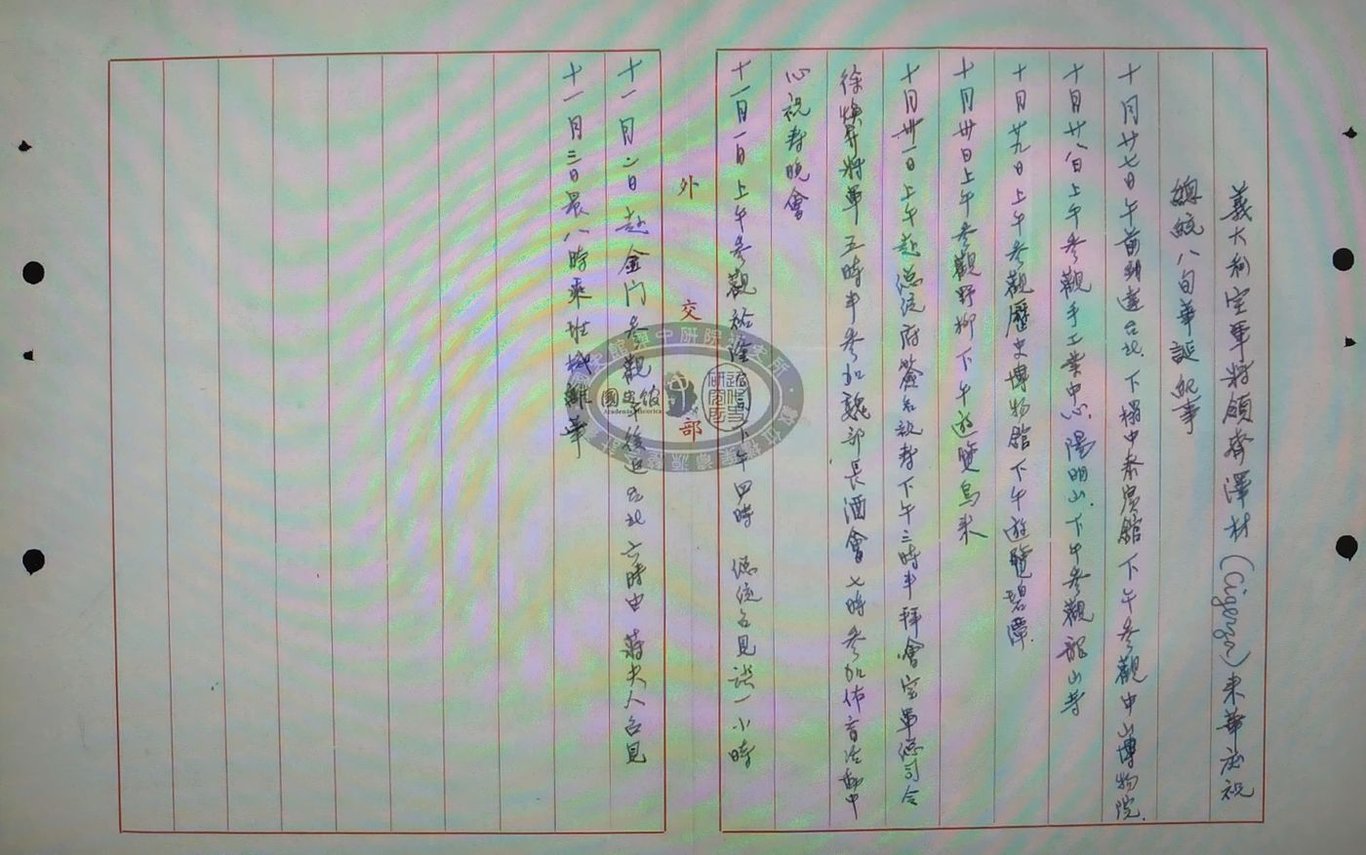 義大利空軍將領齊澤材(Cigerza)來華慶祝
總統八旬華誕紀事
十月廿七日午前到達台北.下榻中泰賓館下午參觀中山博物院.
十月廿八日上午參觀手工業中心.陽明山.下午參觀龍山寺
十月廿九日上午參觀歷史博物館下午遊覽碧潭.
十月卅日上午參觀野柳下午遊覽烏來
十月卅一日上午赴總統府簽名祝壽下午三時半拜會空軍總司令
徐煥昇將軍五時半參加魏部長酒會七時參加体育活動中
心祝壽晚會
十一月一日上午參觀 下午四時 總統召見談一小時
外交部
十一月二日赴金門參觀午後返台北六時由 蔣夫人召見
十一月三日晨八時乘班機離華
國史館
Academia Historica